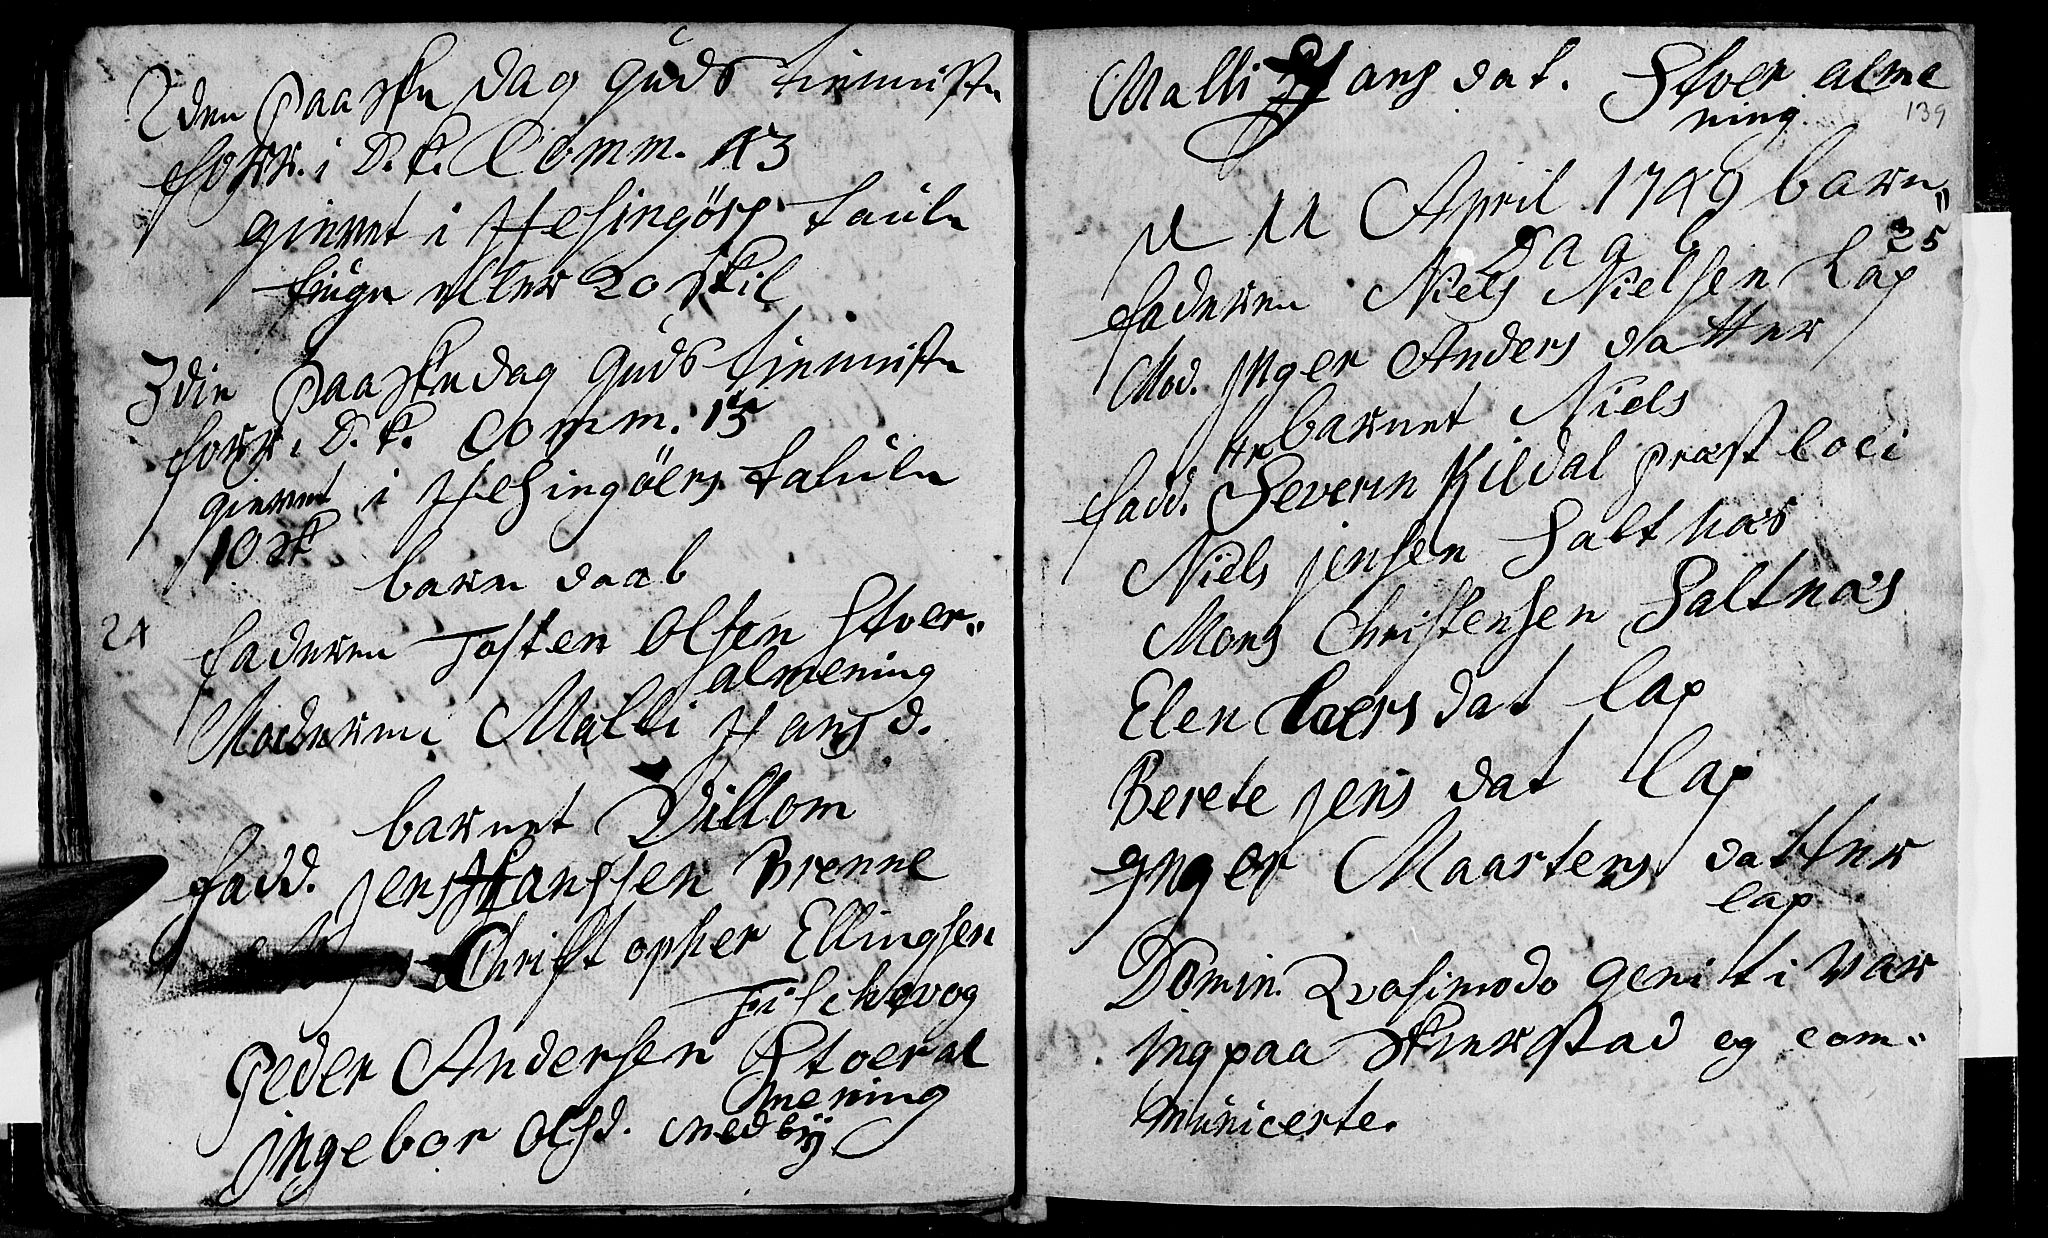 2den Paaske dag Guds tienniste
forr. i D. k. Comm. 43
gievet i Helsingörs taule
kiuge eller 20 skil
3die Paaskedag Guds tienniste
forr. i D. k. Comm. 15
gievet i Helsingöers tafule
10 sk
barn daab
24
faderen Tosten Olsen Stver-
almening
Moderen Malli Hans d.
barnet Villom
fadd. Jens Hanssen Brenne
Christopher Ellingsen
Fischevog
Peder Andersen Stoeral
mening
Ingebor Olsd. Nedbÿ
Malli Hans dat. Stver alme
ning
139
d 11 April 1749 barn
daab
25
faderen Niels Nielsen Lap
Mod. Inger Anders datter
barnet Niels
fadd. Hr Severin Kildal præst loci
Niels Jensen Saltnæs
Mons Christensen Saltnæs
Elen Laers dat lap
Berete Jens dat lap
Inger Maartens datter
lap
Domin. Qvasimodo geniti var
ing paa Skierstad og com-
municerte.